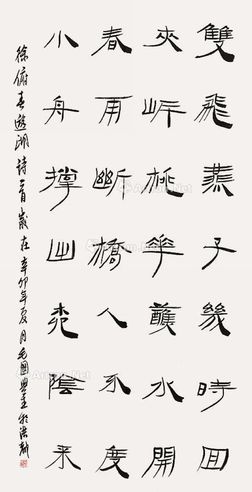 雙飛燕子幾時回
夾岸桃華蘸水開
春雨斷橋人不度
小舟撐出柳陰來
徐俯春遊湖詩一首歲在辛卯年夏月毛國典書於洪都